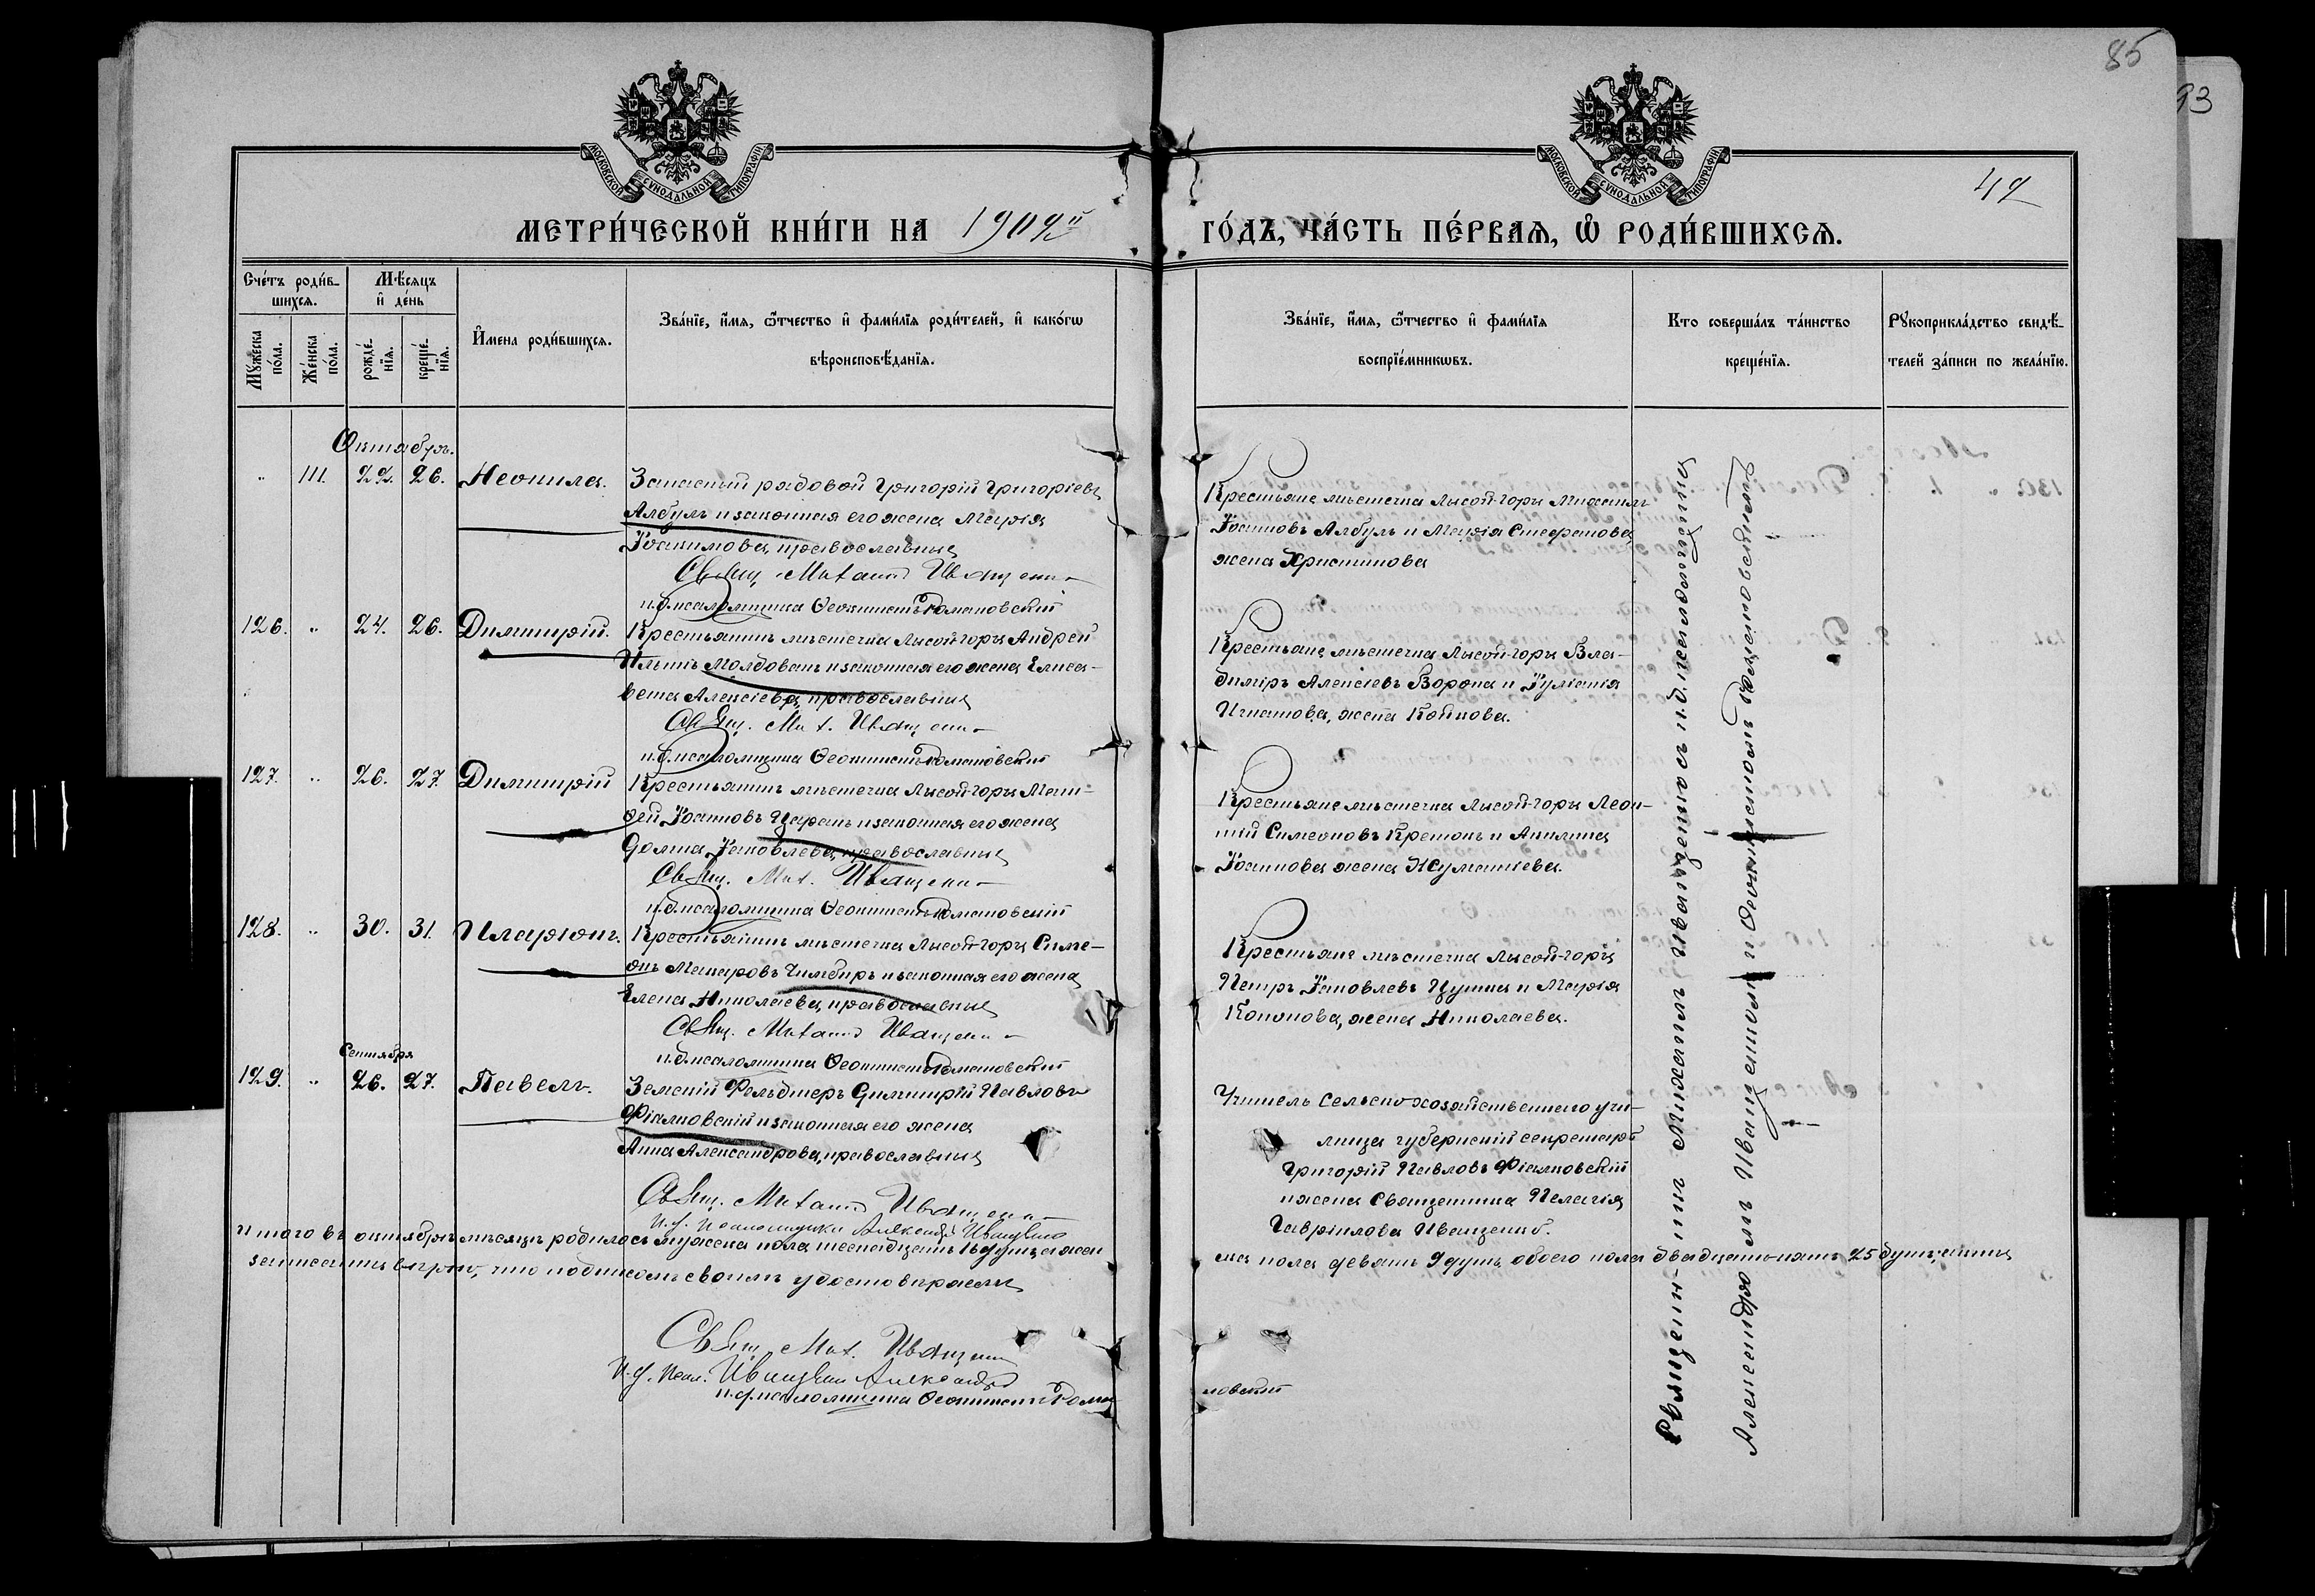 85
93
42
МОСКОВСКОЙ СУНОДАЛЬНОЙ ТИПОГРАФІИ
МОСКОВСКОЙ СУНОДАЛЬНОЙ ТИПОГРАФІИ
МЕТРИ́ЧЕСКОЙ КНИ́ГИ НА 1909й
ГО́ДЪ, ЧА́СТЬ ПЕ́РВАѦ, Ѡ҆ РОДИ́ВШИХСѦ.
Сче́тъ роди́в-
шихсѧ.
Мѣ́сѧцъ
и҆ де́нь
Мꙋ́жеска по́ла.
Же́нска по́ла.
рожде́-
нїѧ.
креще́-
нїѧ.
И҆мена роди́вшихсѧ.
Зва́нїе, и҆́мѧ, ѻ҆́тчество и҆ фами́лїѧ роди́телей, и҆ како́гѡ
вѣроисповѣ́данїѧ.
Зва́нїе, и҆́мѧ, ѻ҆́тчество и҆ фами́лїѧ
воспрїе́мникѡвъ.
Кто соверша́лъ та́инство
креще́нїѧ.
Рꙋкоприкла́дство свидѣ́-
телей за́писи по жела́нїю.
Октябрь.
" 111. 22. 26. Неонила. Запасный рядовой Григорій Григоріевъ
Албулъ и законная его жена Марія
Іоакимова, православные
Свящ. Михаилъ Иващенко
и. д. псаломщика Ѳеоктистъ Романовскій
Крестьяне мѣстечка Лысой-горы Михаилъ
Іоанновъ Албулъ и Марія Стефанова
жена Христинова
126. " 24. 26. Димитрій. Крестьянинъ мѣстечка Лысой-горы Андрей
Ильинъ Молдованъ и законная его жена Елиса-
вета Алексіева, православные
Свящ. Мих. Иващенко
и. д. псаломщика Ѳеоктистъ Романовскій
Крестьяне мѣстечка Лысой-горы Вла-
димиръ Алексіевъ Ворона и Іуліанія
Игнатова, жена Койнова.
127. " 26. 27. Димитрій Крестьянинъ мѣстечка Лысой-горы Мат-
ѳей Іоанновъ Царанъ и законная его жена
Домна Іаковлева, православные
Свящ. Мих. Иващенко
и. д. псаломщика Ѳеоктистъ Романовскій
Крестьяне мѣстечка Лысой-горы Леон-
тій Симеоновъ Кретонъ и Акилина
Іоаннова жена Жуматіева.
128. " 30. 31. Иларіонъ. Крестьянинъ мѣстечка Лысой-горы Симе-
онъ Макаровъ Чимбиръ и законная его жена
Елена Николаева, православные
Свящ. Михаилъ Иващенко
и. д. псаломщика Ѳеоктистъ Романовскій
Крестьяне мѣстечка Лысой-горы
Петръ Іаковлевъ Цушка и Марія
Кононова, жена Николаева.
Сентября
129. " 26. 27. Павелъ. Земскій Фельдшеръ Димитрій Павловъ
Фіалковскій и законная его жена
Анна Александрова, православные
Свящ. Михаилъ Иващенко
и. д. Псаломщика Александръ Иващенко
Учитель сельско-хозяйственнаго учи-
лища губернскій секретарь
Григорій Павловъ Фіалковскій
и жена Священника Пелагія
Гавріилова Иващенко.
Священники Михаилъ Иващенко съ и. д. псаломщика
Александромъ Иващенкомъ и Ѳеоктистомъ Романовскимъ
Итого въ октябрѣ мѣсяцѣ родилось мужеска пола шестнадцать 16 душъ, а жен
ска пола девять 9 душъ, обоего пола двадцать-пять 25 душъ, актъ
записанъ вѣрно, что подписомъ своимъ удостовѣряемъ
Свящ. Мих. Иващенко
И. д. Псал. Иващенко Александръ
и. д. псаломщика Ѳеоктистъ Рома
новскій